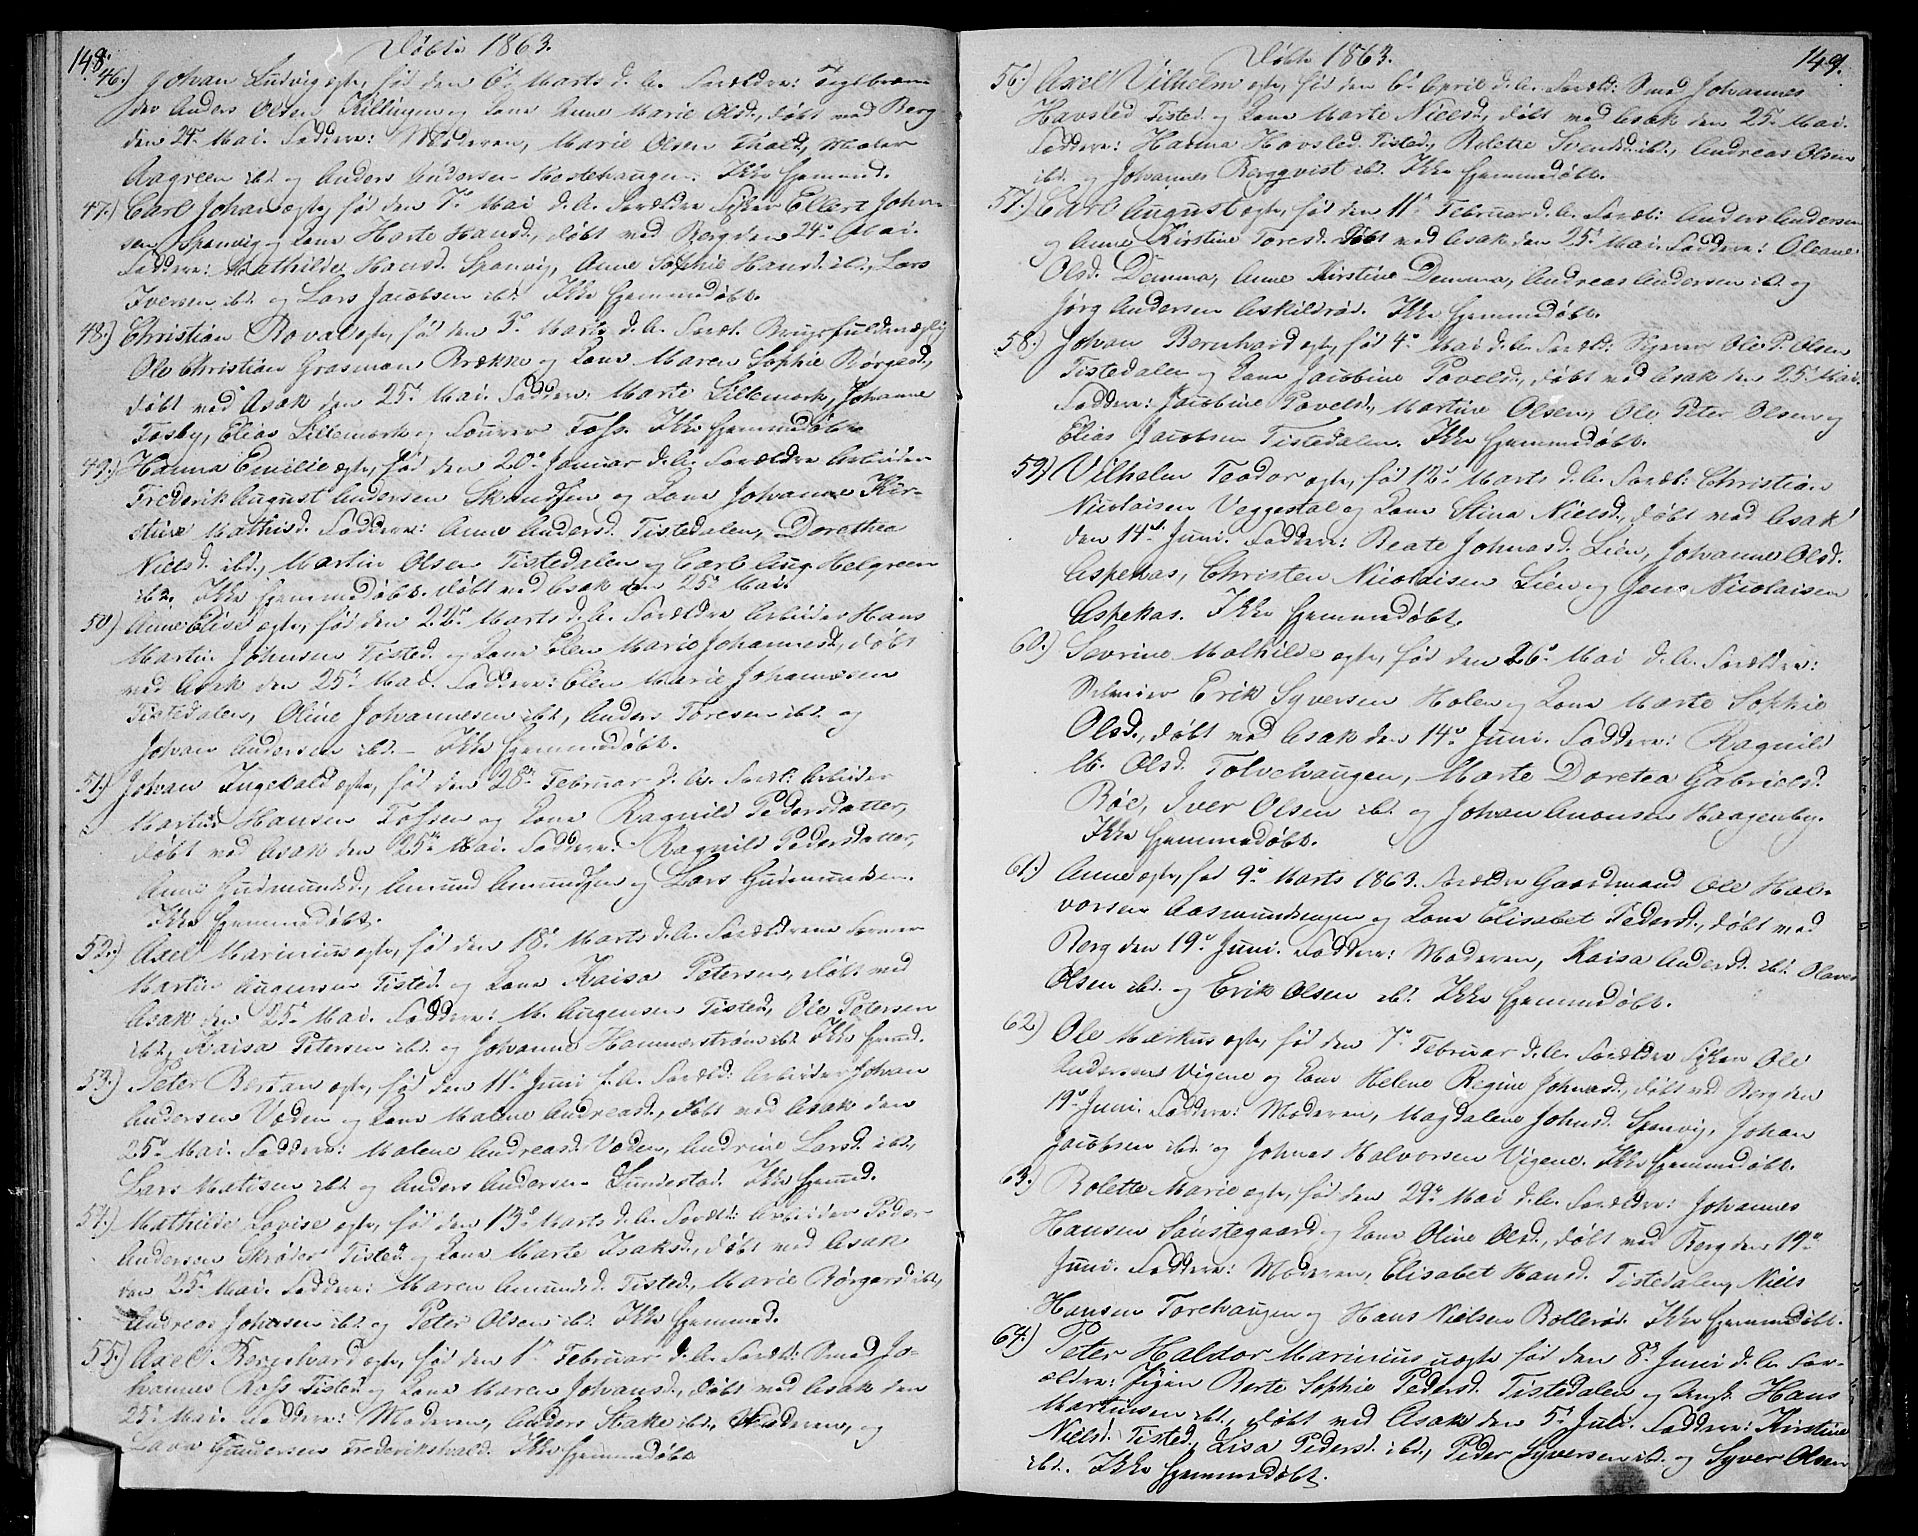 148.
Døbte 1863.
46.) Johan Ludvig egte, fød den 6te Marts d. A. Forældre: Teglbræn-
der Anders Olsen Killingen og Kone Anne Marie Olsd., døbt ved Berg
den 24de Mai. Faddere: Moderen, Marie Olsen Tisted, Maler
Aagreen ibd. og Anders Andersen Hestehaugen. Ikke hjemmed.
47.) Carl Johan egte, fød den 7de Mai d. A. Forældre Fisker Ellert John-
sen Sponvig og Kone Marte Hansd., døbt ved Berg den 24de Mai.
Faddere: Mathilde Hansd. Sponvig, Anne Sophie Hansd. ibd., Lars
Iversen ibd. og Lars Jacobsen ibd. Ikke hjemmedøbt.
48.) Christian Roval egte, fød den 3de Marts d. A. Foræld. Brugsfuldmægtig
Ole Christian Grasman Brække og Kone Maren Sophie Børgesd.,
døbt ved Asak den 25de Mai. Faddere: Marte Lillemork, Johanne
Fosby, Elias Lillemork og Foss. Ikke hjemmedøbt.
49.) Hanna Emilie egte, fød den 20de Januar d. A. Forældre Arbeider
Frederik August Andersen og Kone Johanne Kir-
stine Mathisd. Faddere: Anne Andersd. Tistedalen, Dorethea
Nielsd. ibd., Martin Olsen Tistedalen og Carl Aug. Helgreen
ibd. Ikke hjemmedøbt. døbt ved Asak den 25de Mai.
50.) Anne Elise egte, fød den 22de Marts d. A. Forældre Arbeider Hans
Martin Johnsen Tisted. og Kone Elen Marie Johannesd., døbt
ved Asak den 25de Mai. Faddere: Elen Marie Johannesen
Tistedalen, Oline Johannesen ibd., Anders Toresen ibd. og
Johan Andersen ibd. – Ikke hjemmedøbt.
51.) Johan Ingevald egte, fød den 28de Februar d. A. Foræld: Arbeider
Martin Hansen Fossen og Kone Ragnild Pedersdatter,
døbt ved Asak den 25de Mai. Faddere: Ragnild Pedersdatter,
Anne Gudmundsd., Amund Amundsen og Lars Gudmundsen.
Ikke hjemmedøbt.
52.) Axel Marinius egte, fød den 18de Marts d. A. Forældrene Former
Martin Augensen Tisted. og Kone Kaisa Petersen, døbt ved
Asak den 25de Mai. Faddere: M. Augensen Tisted, Ole Petersen
ibd., Kaisa Petersen ibd. og Johanne Hammerstrøm ibd. Ikke hjemd.
53.) Peter Bertan egte, fød den 11te Juni f. A. Foræld: Arbeider Johan
Andersen Veden og Kone Malene Andreasd., døbt ved Asak den
25de Mai. Faddere: Malene Andreasd. Veden, Andrine Larsd. ibd.,
Lars Matisen ibd. og Anders Andersen Sundestad. Ikke hjemmed.
54.) Mathilde Lovise egte, fød den 13de Marts d. A. Foræld: Arbeider Peder
Andersen Skrøder Tisted. og Kone Marte Isaksd., døbt ved Asak
den 25de Mai. Faddere: Maren Amundsd. Tisted, Marie Børgersd. ibd.,
Andreas Johansen ibd. og Peter Olsen ibd. Ikke hjemmed.
55.) Axel Bergehard egte, fød den 1ste Februar d. A. Foræld: Smed Jo-
hannes Ross Tisted og Kone Maren Johansd., døbt ved Asak den
25de Mai. Faddere: Moderen, Anders Stake ibd., Faderen, og
Gundersen Frederikshald. Ikke hjemmedøbt.
149.
Døbte 1863.
56.) Axel Vilhelm egte, fød den 6te April d. A. Foræld: Smed Johannes
Havsted Tisted. og Kone Marte Nielsd., døbt ved Asak den 25de Mai.
Faddere: Hanna Havsted Tisted, Bolette Svendsen ibd., Andreas Olsen
ibd. og Johannes Bergqvist ibd. Ikke hjemmedøbt.
57.) Carl August egte, fød den 11te Februar d. A. Foræld: Anders Andersen
og Anne Kirstine Toresd. døbt ved Asak den 25de Mai. Faddere: Oleane
Olsd. Demma, Anne Kirstine Demma, Andreas Andersen ibd. og
Jørg. Andersen Askildrød. Ikke hjemmedøbt.
58.) Johan Bernhard egte, fød 4de Mai d. A. Foræld: Ole P. Olsen
Tistedalen og Kone Jacobine Povelsd., døbt ved Asak den 25de Mai.
Faddere: Jacobine Povelsd., Martine Olsen, Ole Peter Olsen og
Elias Jacobsen Tistedalen. Ikke hjemmedøbt.
59.) Vilhelm Teodor egte, fød 12te Marts d. A. Foræld: Christian
Nicolaisen Veggestal og Kone Stina Nielsd., døbt ved Asak
den 14de Juni. Faddere: Beate Johnasd. Lien, Johanne Olsd.
Aspekas, Christen Nicolaisen Lien og Jens Nicolaisen
Aspekas. Ikke hjemmedøbt.
60.) Sevrine Mathilde egte, fød den 26de Mai d. A. Forældre:
Selveier Erik Syversen Holen og Kone Marte Sophie
Olsd., døbt ved Asak den 14de Juni. Faddere: Ragnild
M. Olsd. Tolvehaugen, Marte Doretea Gabrielsd.
Røe, Iver Olsen ibd. og Johan Anonsen Haagenby.
Ikke hjemmedøbt.
61.) Anne egte, fød 9de Marts 1863. Forældre Gaardmand Ole Hal-
vorsen Aasmundsengen og Kone Elisabet Pedersd., døbt ved
Berg den 19de Juni. Faddere: Moderen, Kaisa Andersd. ibd. Olaves
Olsen ibd. og Erik Olsen ibd. Ikke hjemmedøbt.
62.) Ole Markus egte, fød den 7de Februar d. A. Forældre Fisker Ole
Andersen Vigene og Kone Helene Regine Johnasd., døbt ved Berg den
19de Juni. Faddere: Moderen, Magdalene Johnsd. Sponvig, Johan
Jacobsen ibd. og Johnas Halvorsen Vigene. Ikke hjemmedøbt.
63.) Bolette Marie egte, fød den 29de Mai d. A. Forældre: Johannes
Hansen Sønstegaard og Kone Oline Olsd., døbt ved Berg den 19de
Juni. Faddere: Moderen, Elisabet Hansd. Tistedalen, Niels
Hansen Torehaugen og Hans Nielsen Bollerød. Ikke hjemmedøbt.
64.) Peter Haldor Marinius uegte fød den 8de Juni d. A. For-
ældre: Pigen Berte Sophie Pedersd. Tistedalen og Ungk. Hans
Martinsen ibd., døbt ved Asak den 5te Juli. Faddere: Kirstine
Nielsd. Tisted, Lisa Pedersd. ibd., Peder Syversen ibd. og Syver Olsen
ibd. Ikke hjemmedøbt.